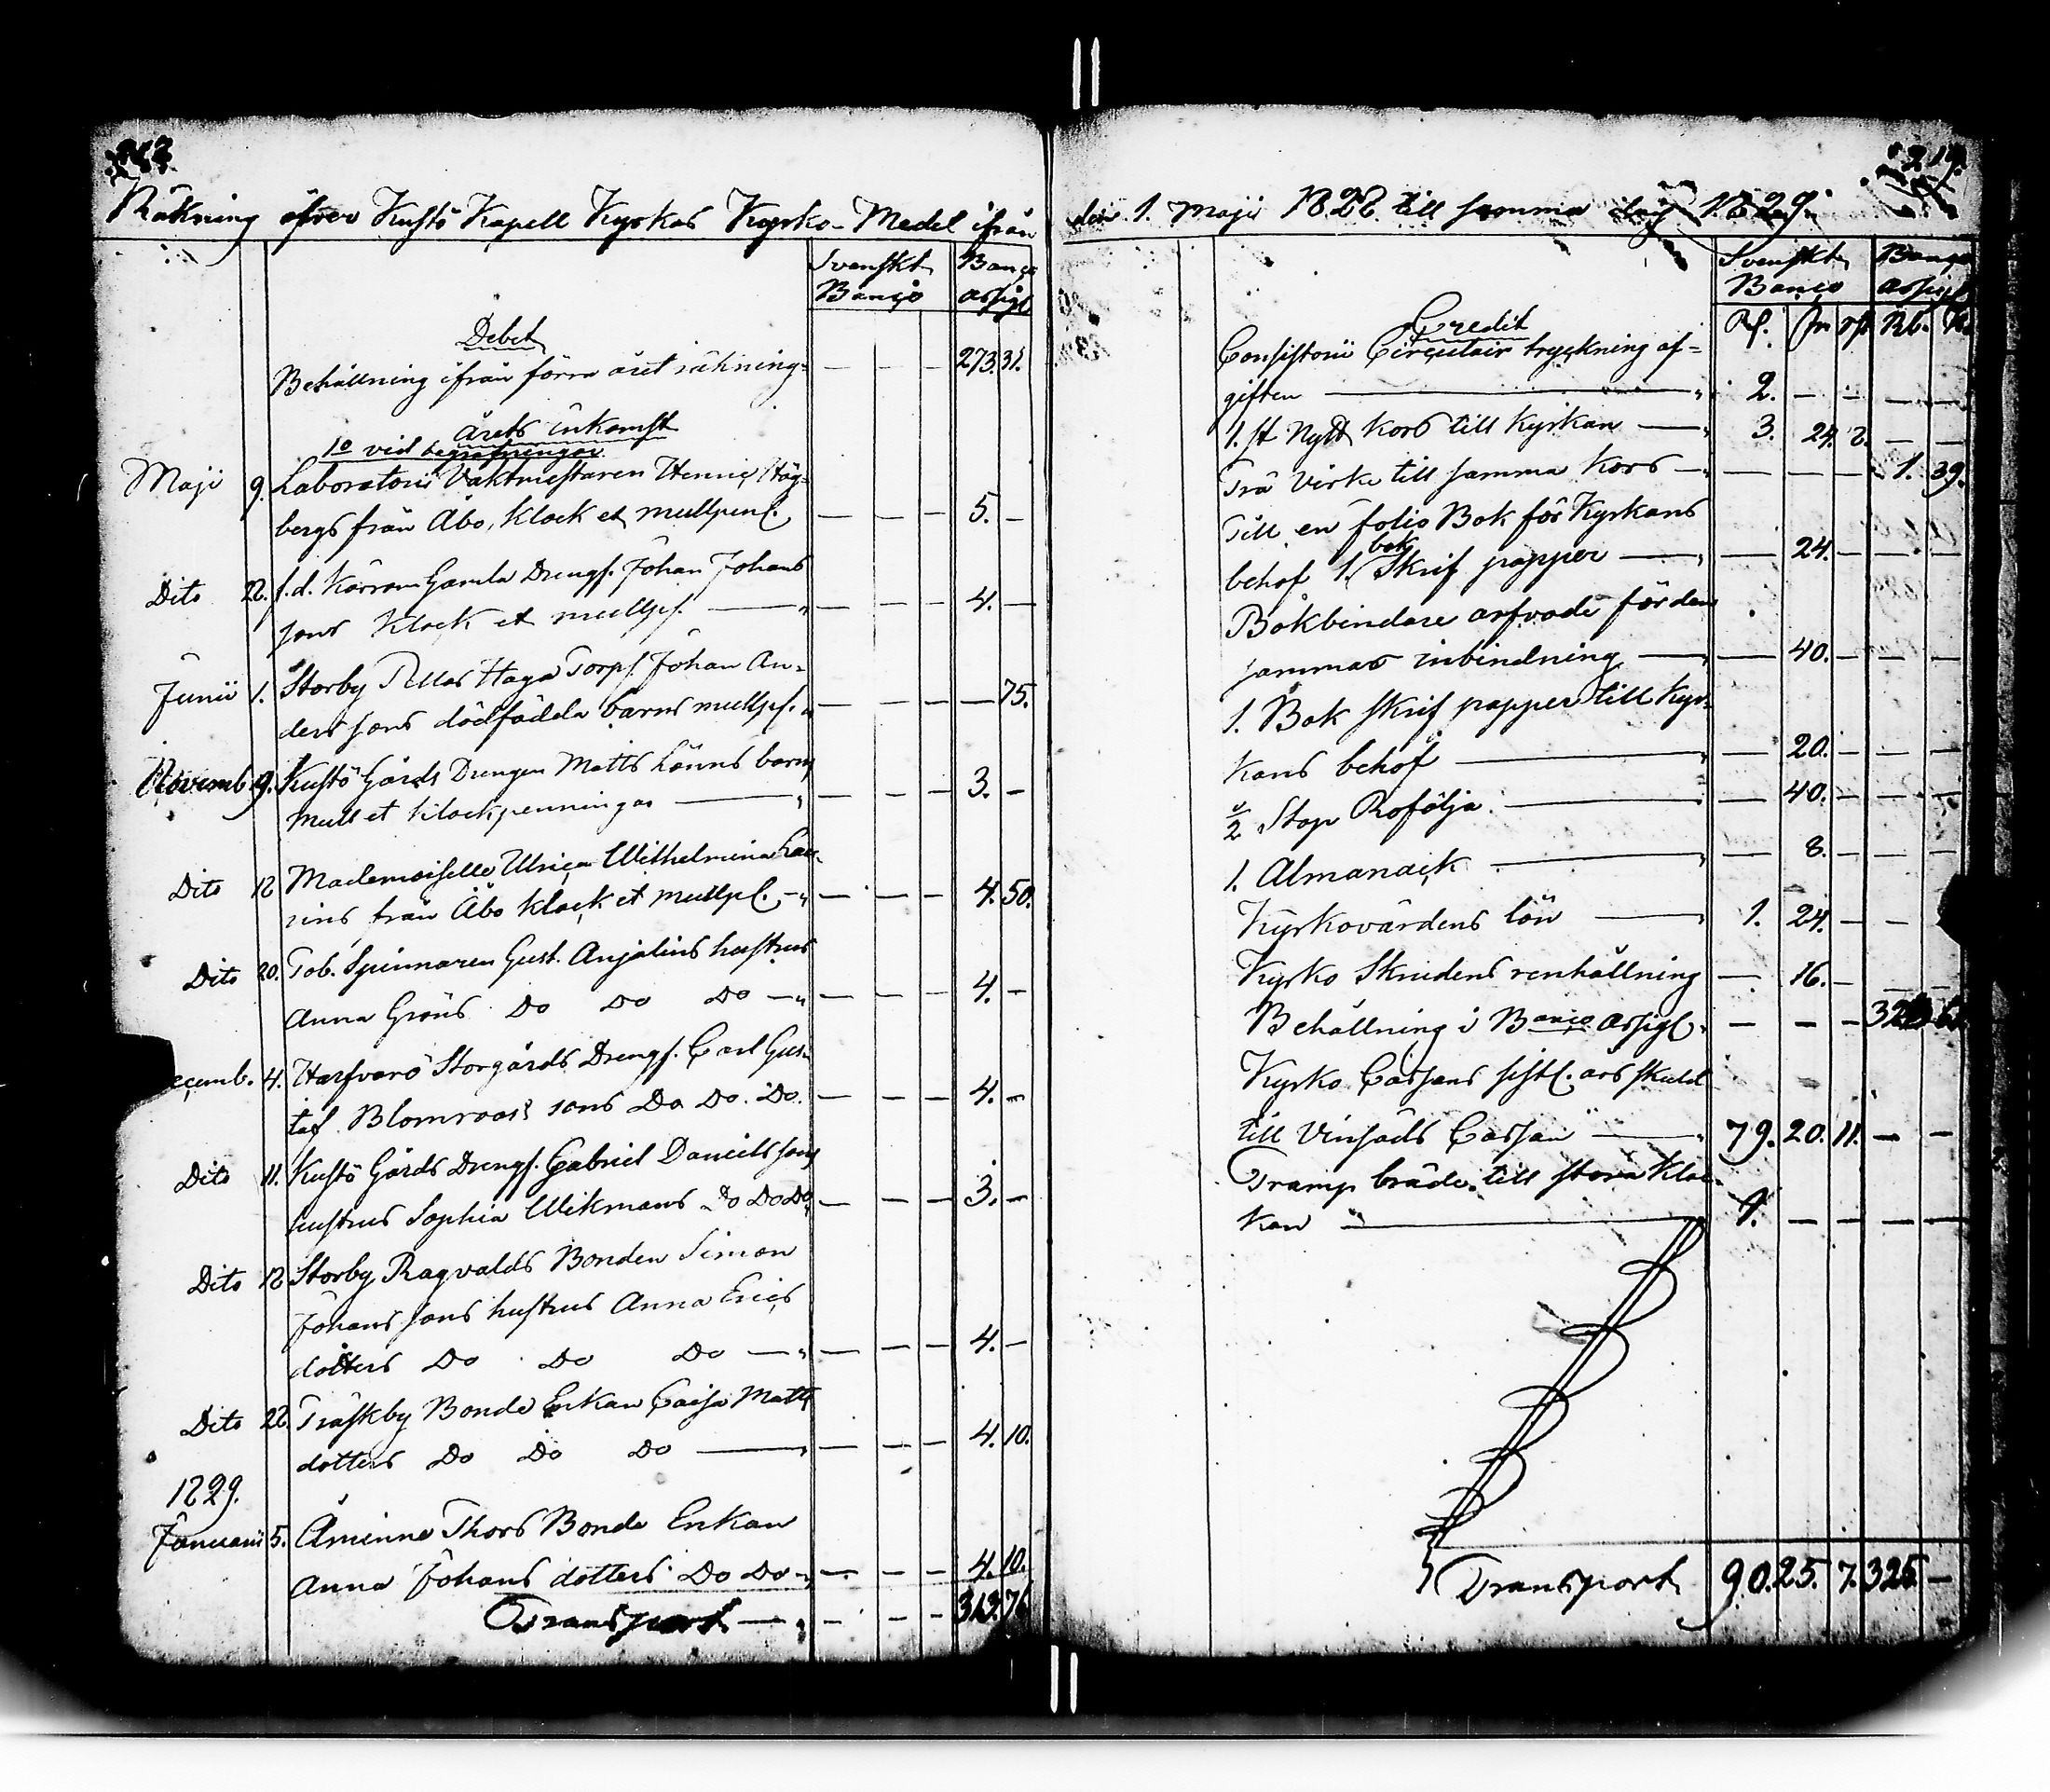 Räkning öfver Kustö Kapell Kyrkas Kyrko-Medel ifrån
Svenskt Banco
Banco assigt
Debet
Behållning ifrån förra året räkning — — — 273. 31.
Årets inkomst
1o vid begrafningar
Maji 9. Laboratorii Vaktmestaren Henric Hög-
bergs från Åbo, Klock et mullpen. — — — 5. —
Dito 22. f.d. Kärrom Gamla Drengs. Johan Johans
sons Klock et mullps. — — — 4. —
Junii 1. Storby Haga Torps. Johan An-
ders sons dödfödda barns mullps. — — — — 75.
Novemb. 9. Kustö Gårds Drengen Matts Lönns barns
Mull et Klockpenningar — — — 3. —
Dito 12 Mademoiselle Ulrica Wilhelmina Lau-
rins från Åbo Klock et mullpl. — — — 4. 50.
Dito 20. Tob. Spinnaren Gust. Anjalins hustrus
Anna Gröns Do Do Do — — — 4. —
ecemb. 4. Harfvarö Storgårds Drengs. Carl Gus-
taf Blomroos's sons Do Do. Do. — — — 4. —
Dito 11. Kustö Gårds Drengs. Gabriel Daniels sons
hustrus Sophia Wikmans Do Do Do — — — 3. —
Dito 12 Storby Ragvalds Bonden Simon
Johans sons hustrus Anna Erics
dotters Do Do Do — — — 4. —
Dito 22. Träskby Bonde Enkan Caisa Matts
dotters Do Do Do — — — 4. 10.
1829.
Januarii 5. Åminne Thors Bonde Enkan
Anna Johans dotters Do Do — — — 4. 10.
Transport — — — 313. 76
219.
den 1. Maji 1828. till samma dag 1829.
Svenskt Banco
Banco assigt
Credit
Rd. sk. rst. Rb. K.
Consistorii Circulair tryckning af-
giften — 2. — — — —
1. st Nytt Kors till Kyrkan — 3. 24. 8. — —
Trä Virke till samma Kors — — — — 1. 39.
Till en folio Bok för Kyrkans
behof 1. bok Skrif papper — — 24. — — —
Bokbindare arfvode för den
sammas inbindning — — 40. — — —
1. Bok Skrif papper till Kyr-
kans behof — — 20. — — —
1/2 Stop Rofölja — — 40. — — —
1. Almanack — — 8. — — —
Kyrkovärdens lön — 1. 24. — — —
Kyrko Skrudens renhållning — 16. —
Behållning i Banco assigl. — — — 323.
Kyrko Cassans sistl. års skuld
till Vinsäds Cassan — 79. 20. 11. — —
Tramp bräde till stora Kloc-
kan — 1. — — — —
Transport 90. 25. 7. 325. —